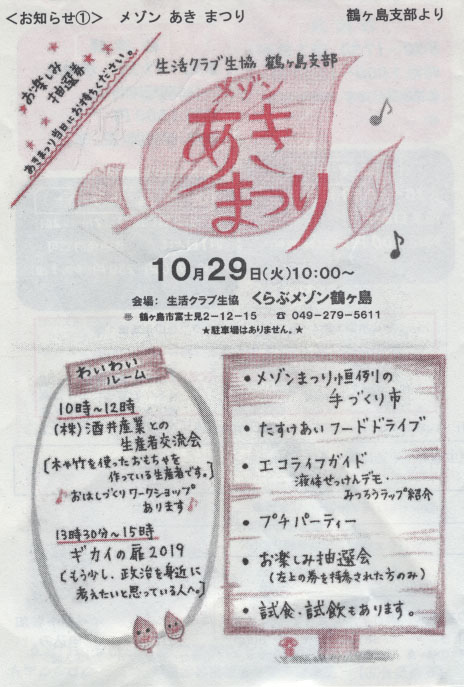 <お知らせ①> メゾン あき まつり 鶴ヶ島支部より
☆お楽しみ☆
☆抽選券☆
あきまつり当日にお持ちください。
生活クラブ生協 鶴ヶ島支部
メゾン
あき
まつり
10月29日(火)10:00～
会場: 生活クラブ生協 くらぶメゾン鶴ヶ島
〠 鶴ヶ島市富士見2-12-15 ☎ 049-279-5611
★駐車場はありません。★
わいわい
ルーム
10時～12時
(株)酒井産業との
生産者交流会
[木や竹を使ったおもちゃを
作っている生産者です。]
♪おはしづくりワークショップ
あります♪
13時30分～15時
ギカイの扉2019
(もう少し、政治を身近に
考えたいと思っている人へ。]
• メゾンまつり恒例の
手づくり市
• たすけあい フードドライブ
• エコライフガイド
液体せっけんデモ・
みつろうラップ紹介
• プチパーティー
• お楽しみ抽選会
(左上の券を持参された方のみ)
• 試食・試飲もあります。